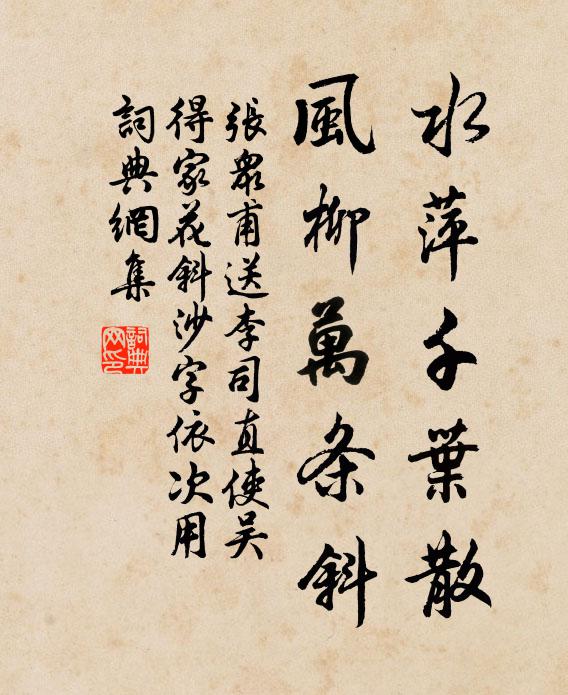 水萍千葉散
風柳萬条斜
張眾甫送李司直使吴
得家花斜沙字依次用
詞典網集
詞典网印